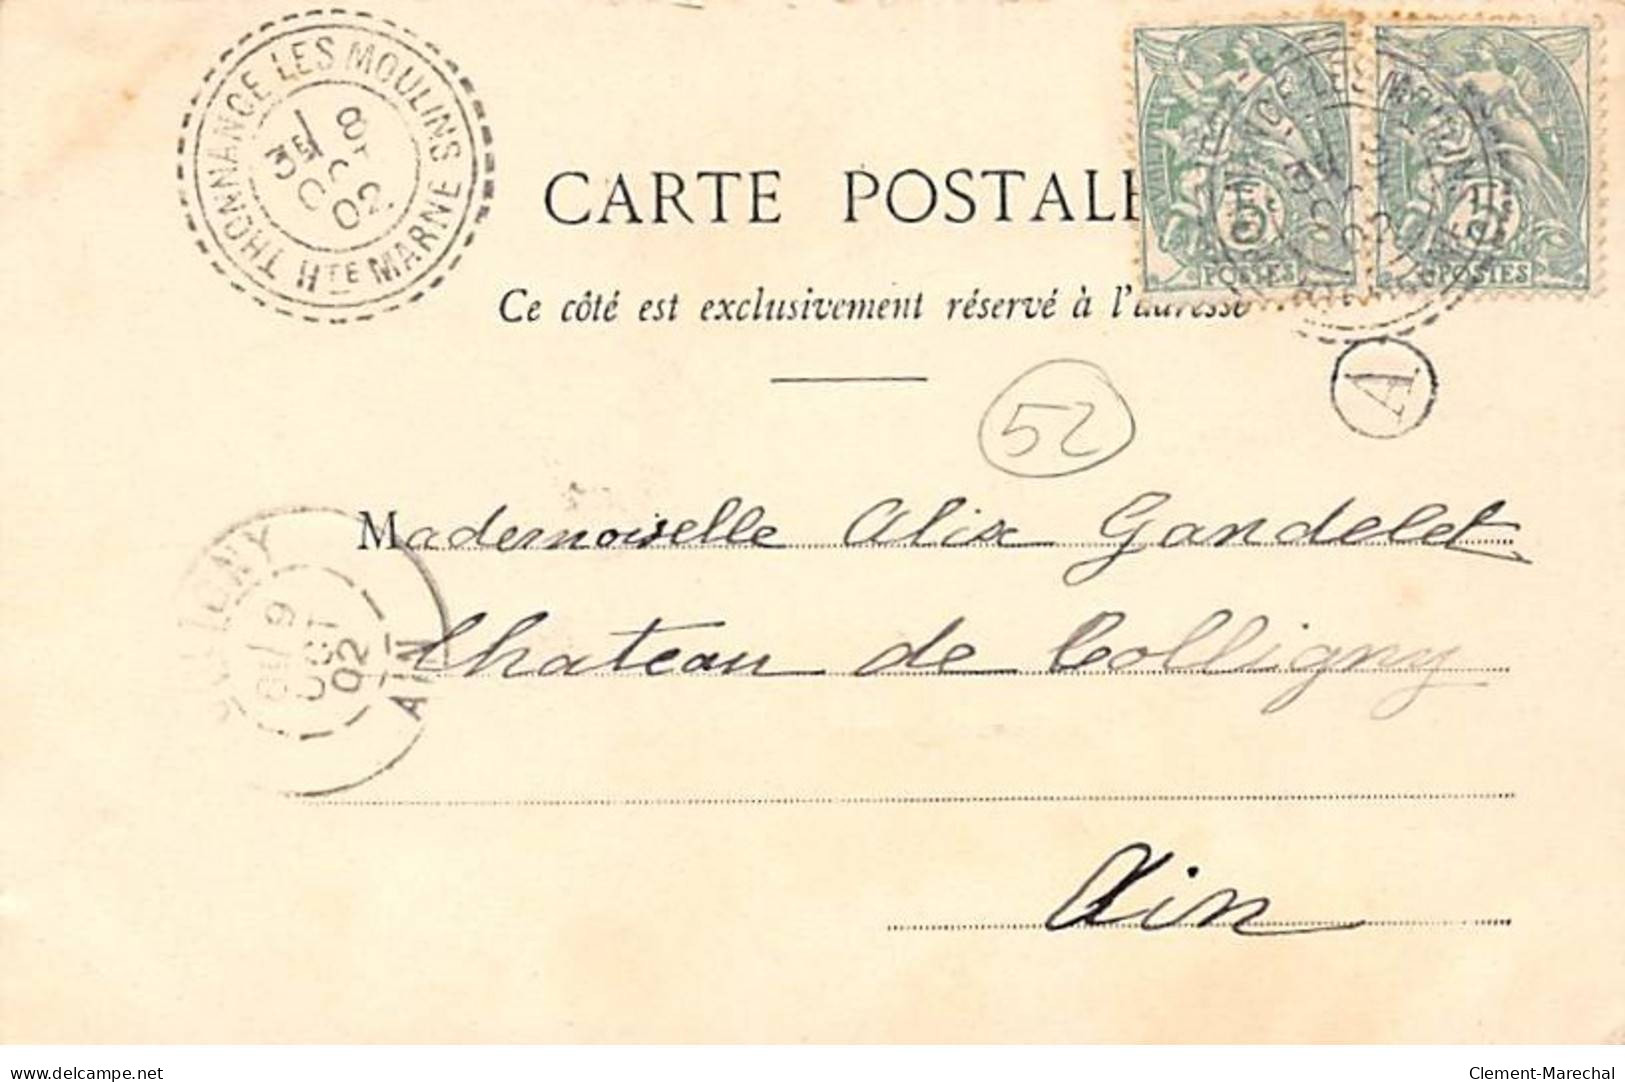 THONNANCE LES MOULINS
Hte MARNE
3E
8
OC
02
CARTE POSTALE
Ce côté est exclusivement réservé à l'adresse
5
POSTES
POSTES
A
52
Mademoiselle Alix Gandelet
Chateau de Colligny
9
OCT
02
AIN
Ain
delcampe.net
Clement-Marechal